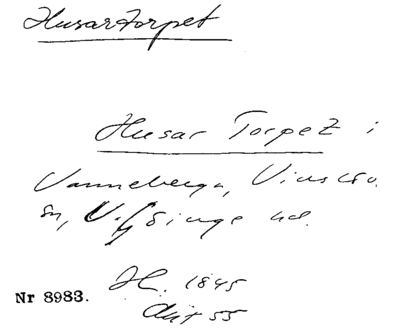 Husartorpet
Husar Torpet i
Vanneberga, Vinslöv.
sn, V. Göinge hd.
Nr 8983. H. 1845
Akt 55